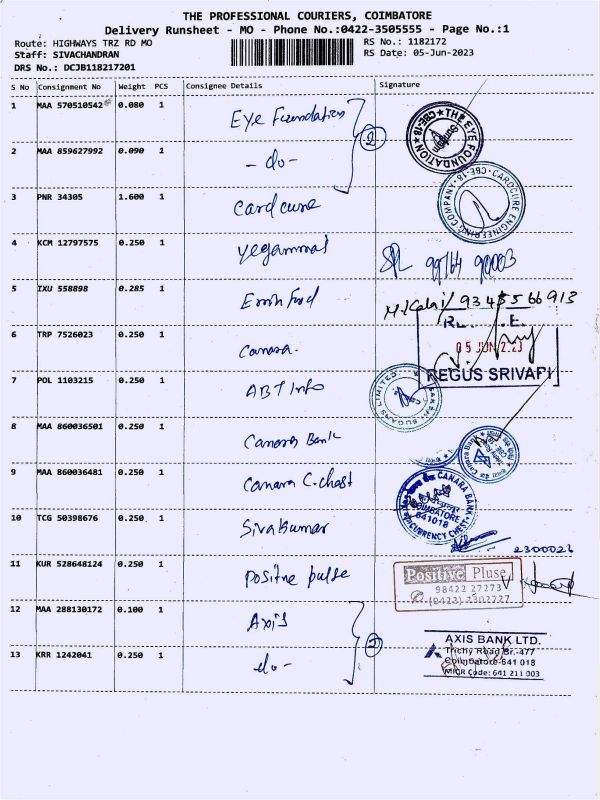 THE PROFESSIONAL COURIERS, COIMBATORE
Delivery Runsheet - MO - Phone No.:0422-3505555 - Page No.:1
Route: HIGHWAYS TRZ RD MO
RS No.: 1182172
Staff: SIVACHANDRAN
RS Date: 05-Jun-2023
DRS No.: DCJB118217201
S No Consignment No Weight PCS Consignee Details Signature
1 MAA 570510542 0.080 1 Eye Foundation
2
THE EYE FOUNDATION CBE-18
2 MAA 859627992 0.090 1 - do -
3 PNR 34305 1.600 1 Cardcure
CARDCURE ENGINEERING COMPANY CBE-18
4 KCM 12797575 0.250 1 Yegammai
5 IXU 558898 0.285 1
6 TRP 7526023 0.250 1 Canara.
05 JUN 2023
REGUS SRIVARI
7 POL 1103215 0.250 1 ABT Info
LIMITED
8 MAA 860036501 0.250 1 Canara Bank
9 MAA 860036481 0.250 1 Canara C.chest
CANARA BANK
COIMBATORE
641018
CURRENCY CHEST
10 TCG 50398676 0.250 1 Sivakumar
11 KUR 528648124 0.250 1 Positive pulse
Positive Pluse
98422 27273
12 MAA 288130172 0.100 1 Axis
AXIS BANK LTD.
Trichy Road Br.-477
Coimbatore-641 018
MICR Code: 641 211 003
13 KRR 1242041 0.250 1 do -